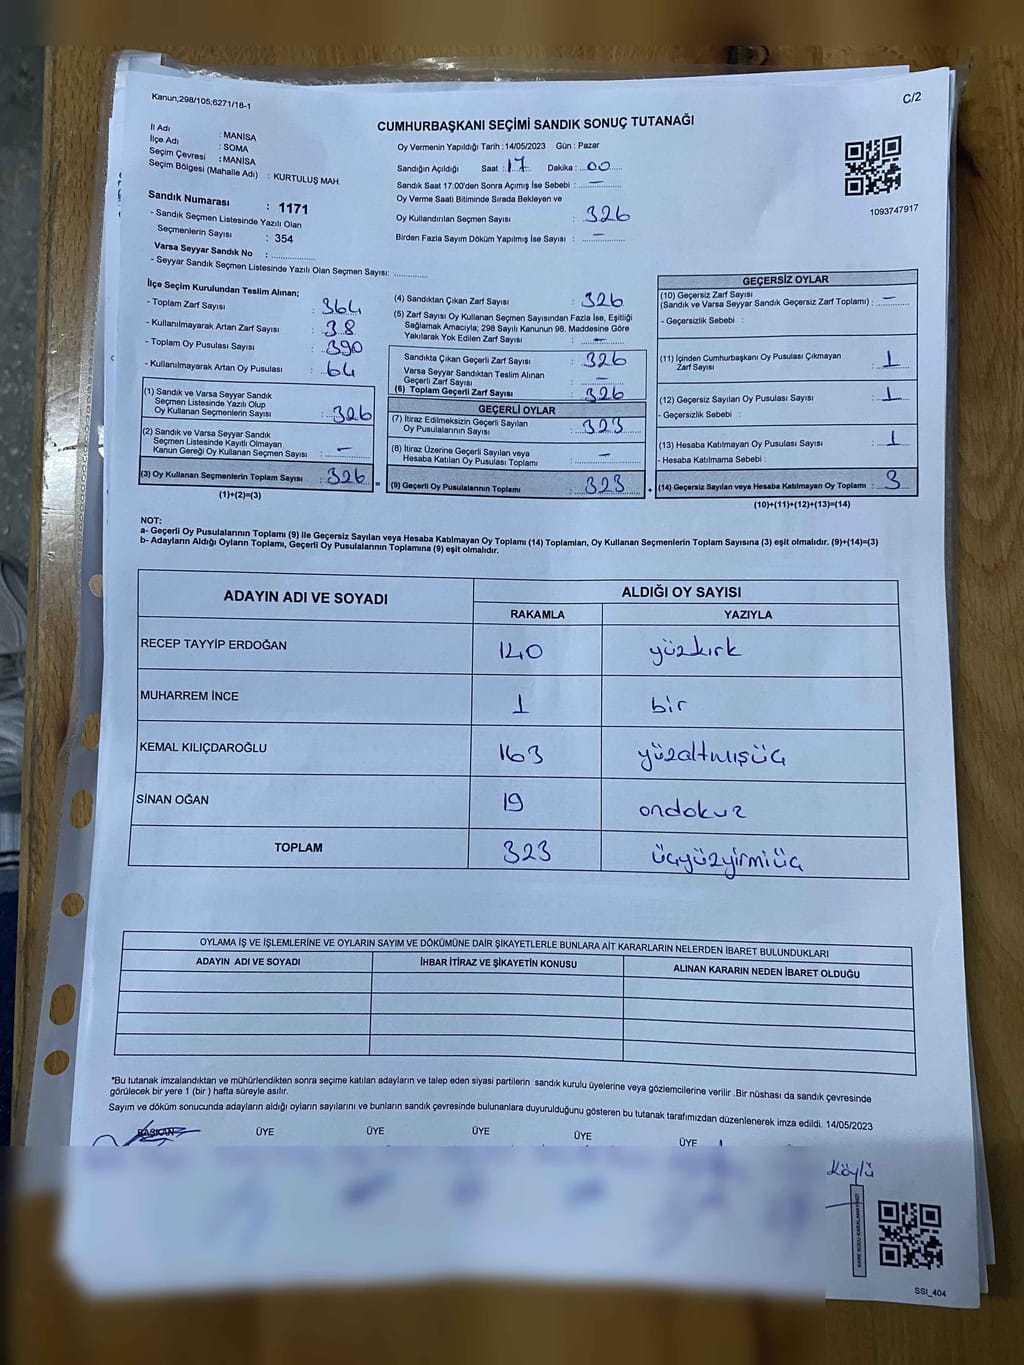 Kanun;298/105;6271/18-1
C/2
CUMHURBAŞKANI SEÇİMİ SANDIK SONUÇ TUTANAĞI
İl Adı : MANİSA
İlçe Adı : SOMA
Seçim Çevresi : MANİSA
Seçim Bölgesi (Mahalle Adı) : KURTULUŞ MAH.
Sandık Numarası : 1171
- Sandık Seçmen Listesinde Yazılı Olan
Seçmenlerin Sayısı : 354
Varsa Seyyar Sandık No :
- Seyyar Sandık Seçmen Listesinde Yazılı Olan Seçmen Sayısı:
Oy Vermenin Yapıldığı Tarih :14/05/2023 Gün : Pazar
Sandığın Açıldığı Saat : 17 Dakika : 00
Sandık Saat 17:00'den Sonra Açımış İse Sebebi : —
Oy Verme Saati Bitiminde Sırada Bekleyen ve
Oy Kullandırılan Seçmen Sayısı : 326
Birden Fazla Sayım Döküm Yapılmış İse Sayısı : —
1093747917
İlçe Seçim Kurulundan Teslim Alınan;
- Toplam Zarf Sayısı : 364
- Kullanılmayarak Artan Zarf Sayısı : 38
- Toplam Oy Pusulası Sayısı : 390
- Kullanılmayarak Artan Oy Pusulası : 64
(1) Sandık ve Varsa Seyyar Sandık
Seçmen Listesinde Yazılı Olup
Oy Kullanan Seçmenlerin Sayısı : 326
(2) Sandık ve Varsa Seyyar Sandık
Seçmen Listesinde Kayıtlı Olmayan
Kanun Gereği Oy Kullanan Seçmen Sayısı : —
(3) Oy Kullanan Seçmenlerin Toplam Sayısı : 326
(1)+(2)=(3)
=
(4) Sandıktan Çıkan Zarf Sayısı : 326
(5) Zarf Sayısı Oy Kullanan Seçmen Sayısından Fazla İse, Eşitliği
Sağlamak Amacıyla; 298 Sayılı Kanunun 98. Maddesine Göre
Yakılarak Yok Edilen Zarf Sayısı : —
Sandıkta Çıkan Geçerli Zarf Sayısı : 326
Varsa Seyyar Sandıktan Teslim Alınan
Geçerli Zarf Sayısı : —
(6) Toplam Geçerli Zarf Sayısı : 326
GEÇERLİ OYLAR
(7) İtiraz Edilmeksizin Geçerli Sayılan
Oy Pusulalarının Sayısı : 323
(8) İtiraz Üzerine Geçerli Sayılan veya
Hesaba Katılan Oy Pusulası Toplamı : —
(9) Geçerli Oy Pusulalarının Toplamı : 323
+
GEÇERSİZ OYLAR
(10) Geçersiz Zarf Sayısı
(Sandık ve Varsa Seyyar Sandık Geçersiz Zarf Toplamı) : —
- Geçersizlik Sebebi :
(11) İçinden Cumhurbaşkanı Oy Pusulası Çıkmayan
Zarf Sayısı : 1
(12) Geçersiz Sayılan Oy Pusulası Sayısı : 1
- Geçersizlik Sebebi :
(13) Hesaba Katılmayan Oy Pusulası Sayısı : 1
- Hesaba Katılmama Sebebi :
(14) Geçersiz Sayılan veya Hesaba Katılmayan Oy Toplamı : 3
(10)+(11)+(12)+(13)=(14)
NOT:
a- Geçerli Oy Pusulalarının Toplamı (9) ile Geçersiz Sayılan veya Hesaba Katılmayan Oy Toplamı (14) Toplamları, Oy Kullanan Seçmenlerin Toplam Sayısına (3) eşit olmalıdır. (9)+(14)=(3)
b- Adayların Aldığı Oyların Toplamı, Geçerli Oy Pusulalarının Toplamına (9) eşit olmalıdır.
ADAYIN ADI VE SOYADI ALDIĞI OY SAYISI
RAKAMLA YAZIYLA
RECEP TAYYİP ERDOĞAN 140 yüzkırk
MUHARREM İNCE 1 bir
KEMAL KILIÇDAROĞLU 163 yüzaltmışüç
SİNAN OĞAN 19 ondokuz
TOPLAM 323 üçyüzyirmiüç
OYLAMA İŞ VE İŞLEMLERİNE VE OYLARIN SAYIM VE DÖKÜMÜNE DAİR ŞİKAYETLERLE BUNLARA AİT KARARLARIN NELERDEN İBARET BULUNDUKLARI
ADAYIN ADI VE SOYADI İHBAR İTİRAZ VE ŞİKAYETİN KONUSU ALINAN KARARIN NEDEN İBARET OLDUĞU
*Bu tutanak imzalandıktan ve mühürlendikten sonra seçime katılan adayların ve talep eden siyasi partilerin sandık kurulu üyelerine veya gözlemcilerine verilir .Bir nüshası da sandık çevresinde
görülecek bir yere 1 (bir ) hafta süreyle asılır.
Sayım ve döküm sonucunda adayların aldığı oyların sayılarını ve bunların sandık çevresinde bulunanlara duyurulduğunu gösteren bu tutanak tarafımızdan düzenlenerek imza edildi. 14/05/2023
BAŞKAN ÜYE ÜYE ÜYE ÜYE ÜYE
Köylü
KARE KODU KARALAMAYINIZ!
SSI_404